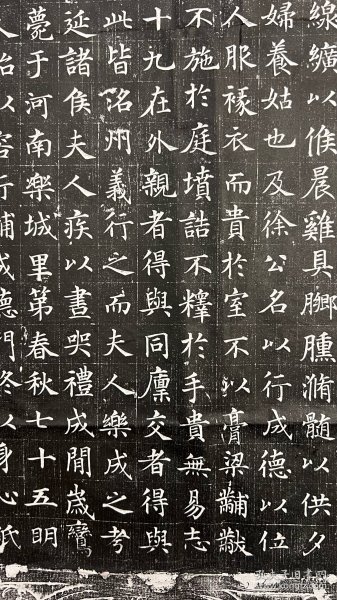 線纊以俟晨雞具膷臐滫髓以供夕
婦養姑也及徐公名以行成德以位
人服褖衣而貴於室不以膏粱黼黻
不施於庭墳誥不釋於手貴無易志
十九在外親者得與同廩交者得與
此皆洺州義行之而夫人樂成之考
延諸侯夫人疾以晝哭禮成閒歲鸞
薨于河南樂城里第春秋七十五明
以容行輔成德門終以身心